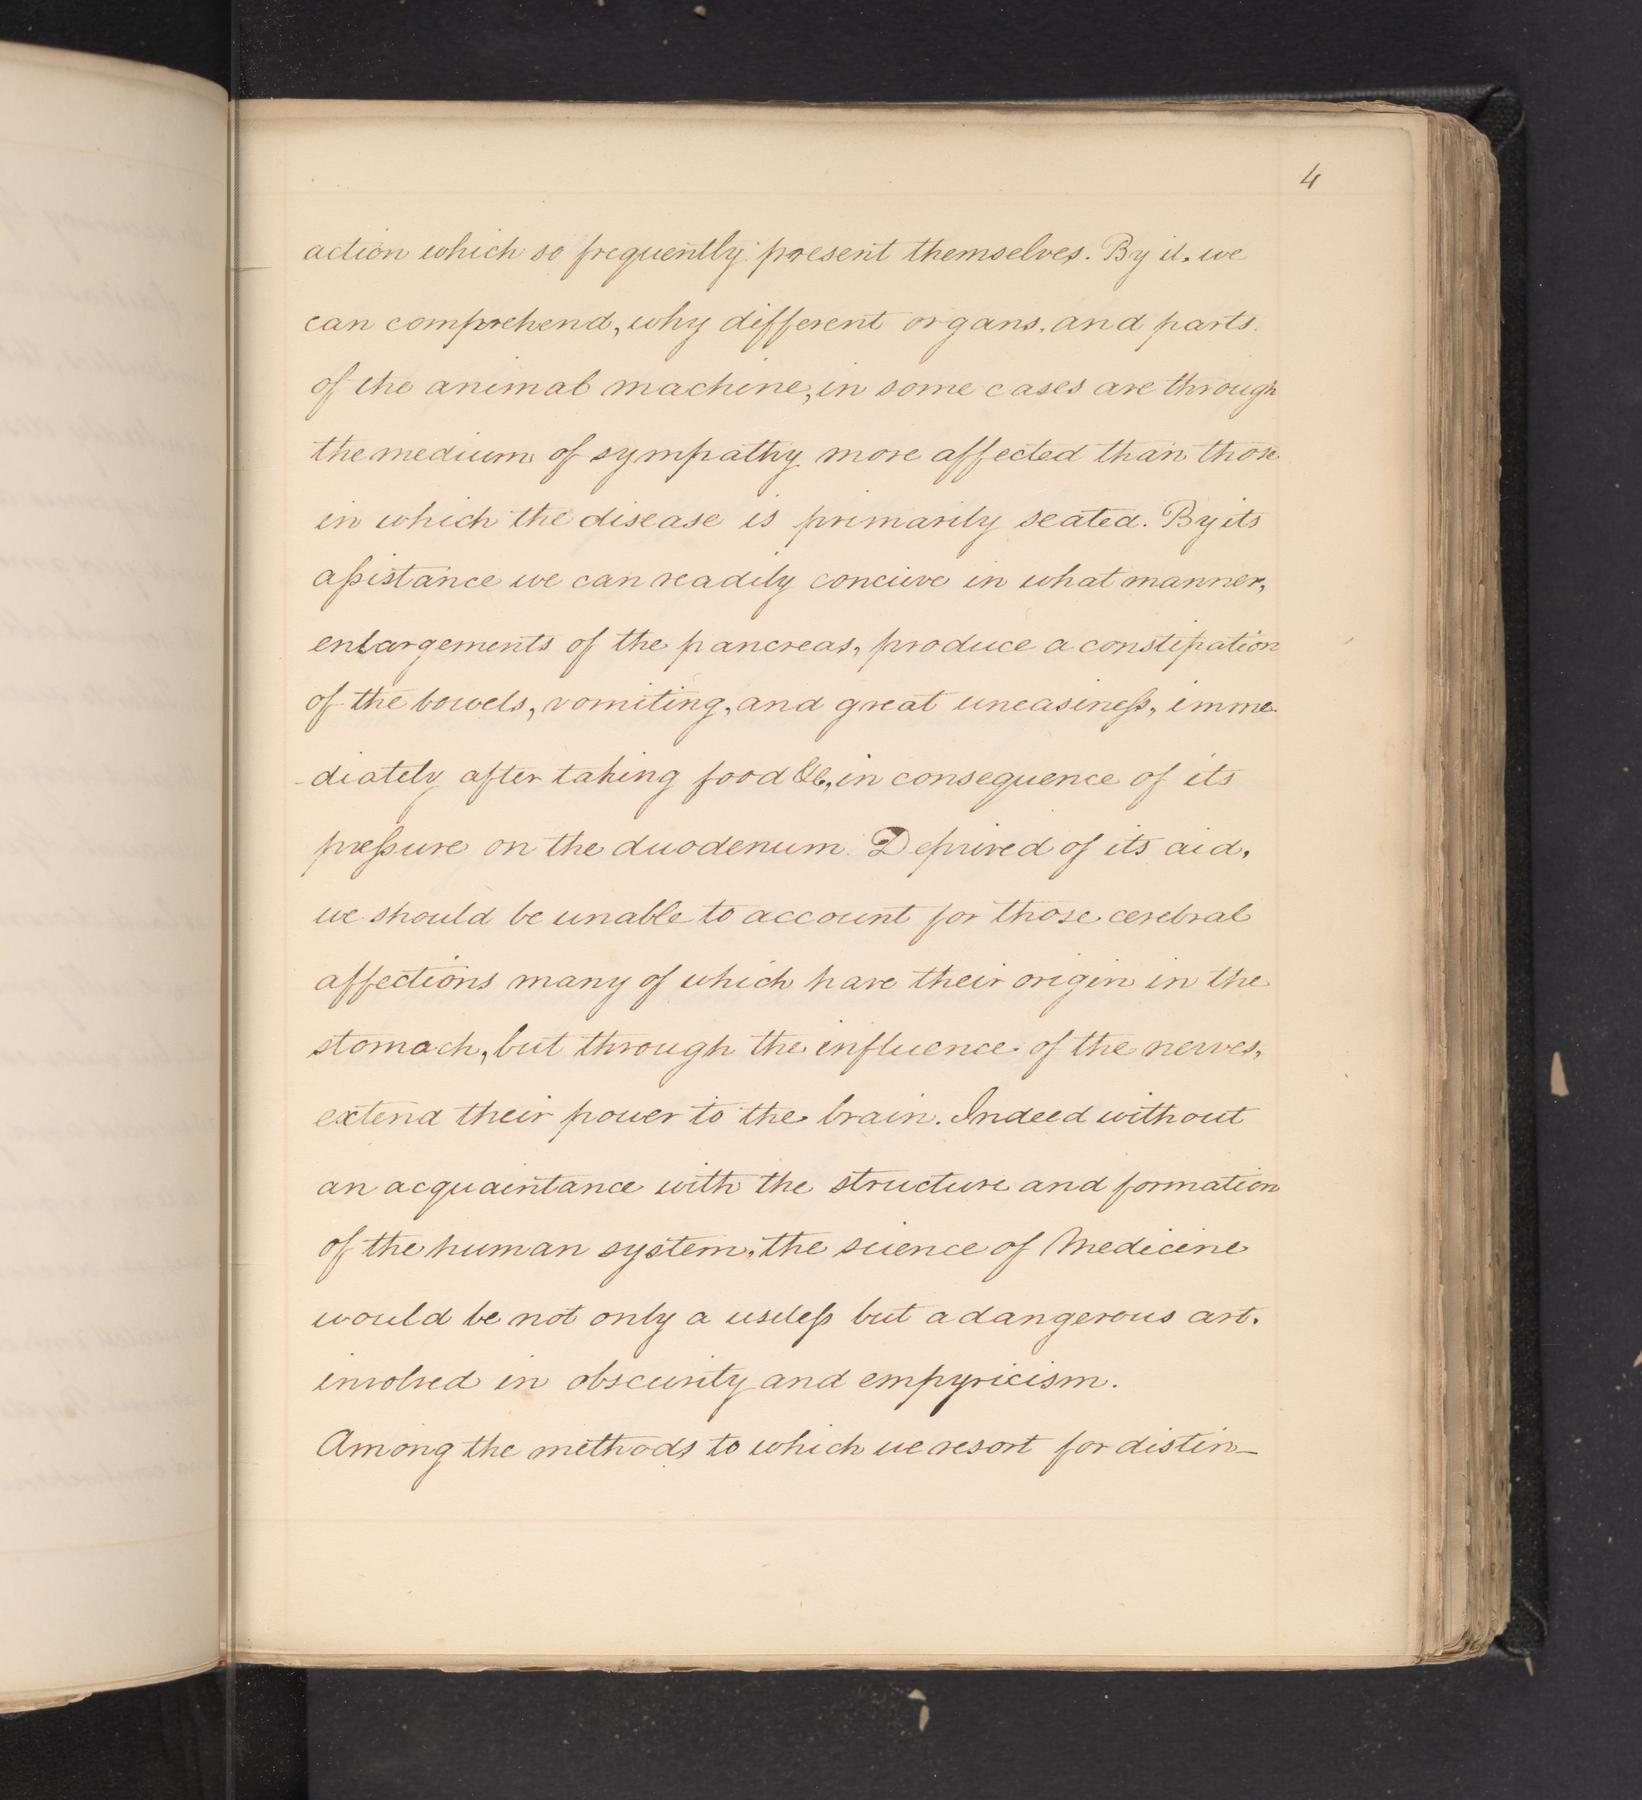 4
action which so frequently present themselves. By it, we
can comprehend, why different organs, and parts
of the animal machine, in some cases are through
the medium of sympathy more affected than those
in which the disease is primarily seated. By its
aſsistance we can readily concieve in what manner,
enlargements of the pancreas, produce a constipation
of the bowels, vomiting, and great uneasineſs, imme-
-diately after taking food &c, in consequence of its
preſsure on the duodenum. Deprived of its aid,
we should be unable to account for those cerebral
affections many of which have their origin in the
stomach, but through the influence of the nerves,
extend their power to the brain. Indeed without
an acquaintance with the structure and formation
of the human system, the science of Medicine
would be not only a useleſs but a dangerous art.
involved in obscurity and empyricism.
Among the methods to which we resort for distin-